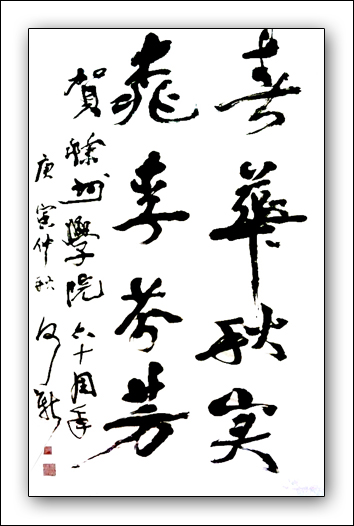 春華秋实
桃李芬芳
賀滁州學院六十周年
庚寅仲秋